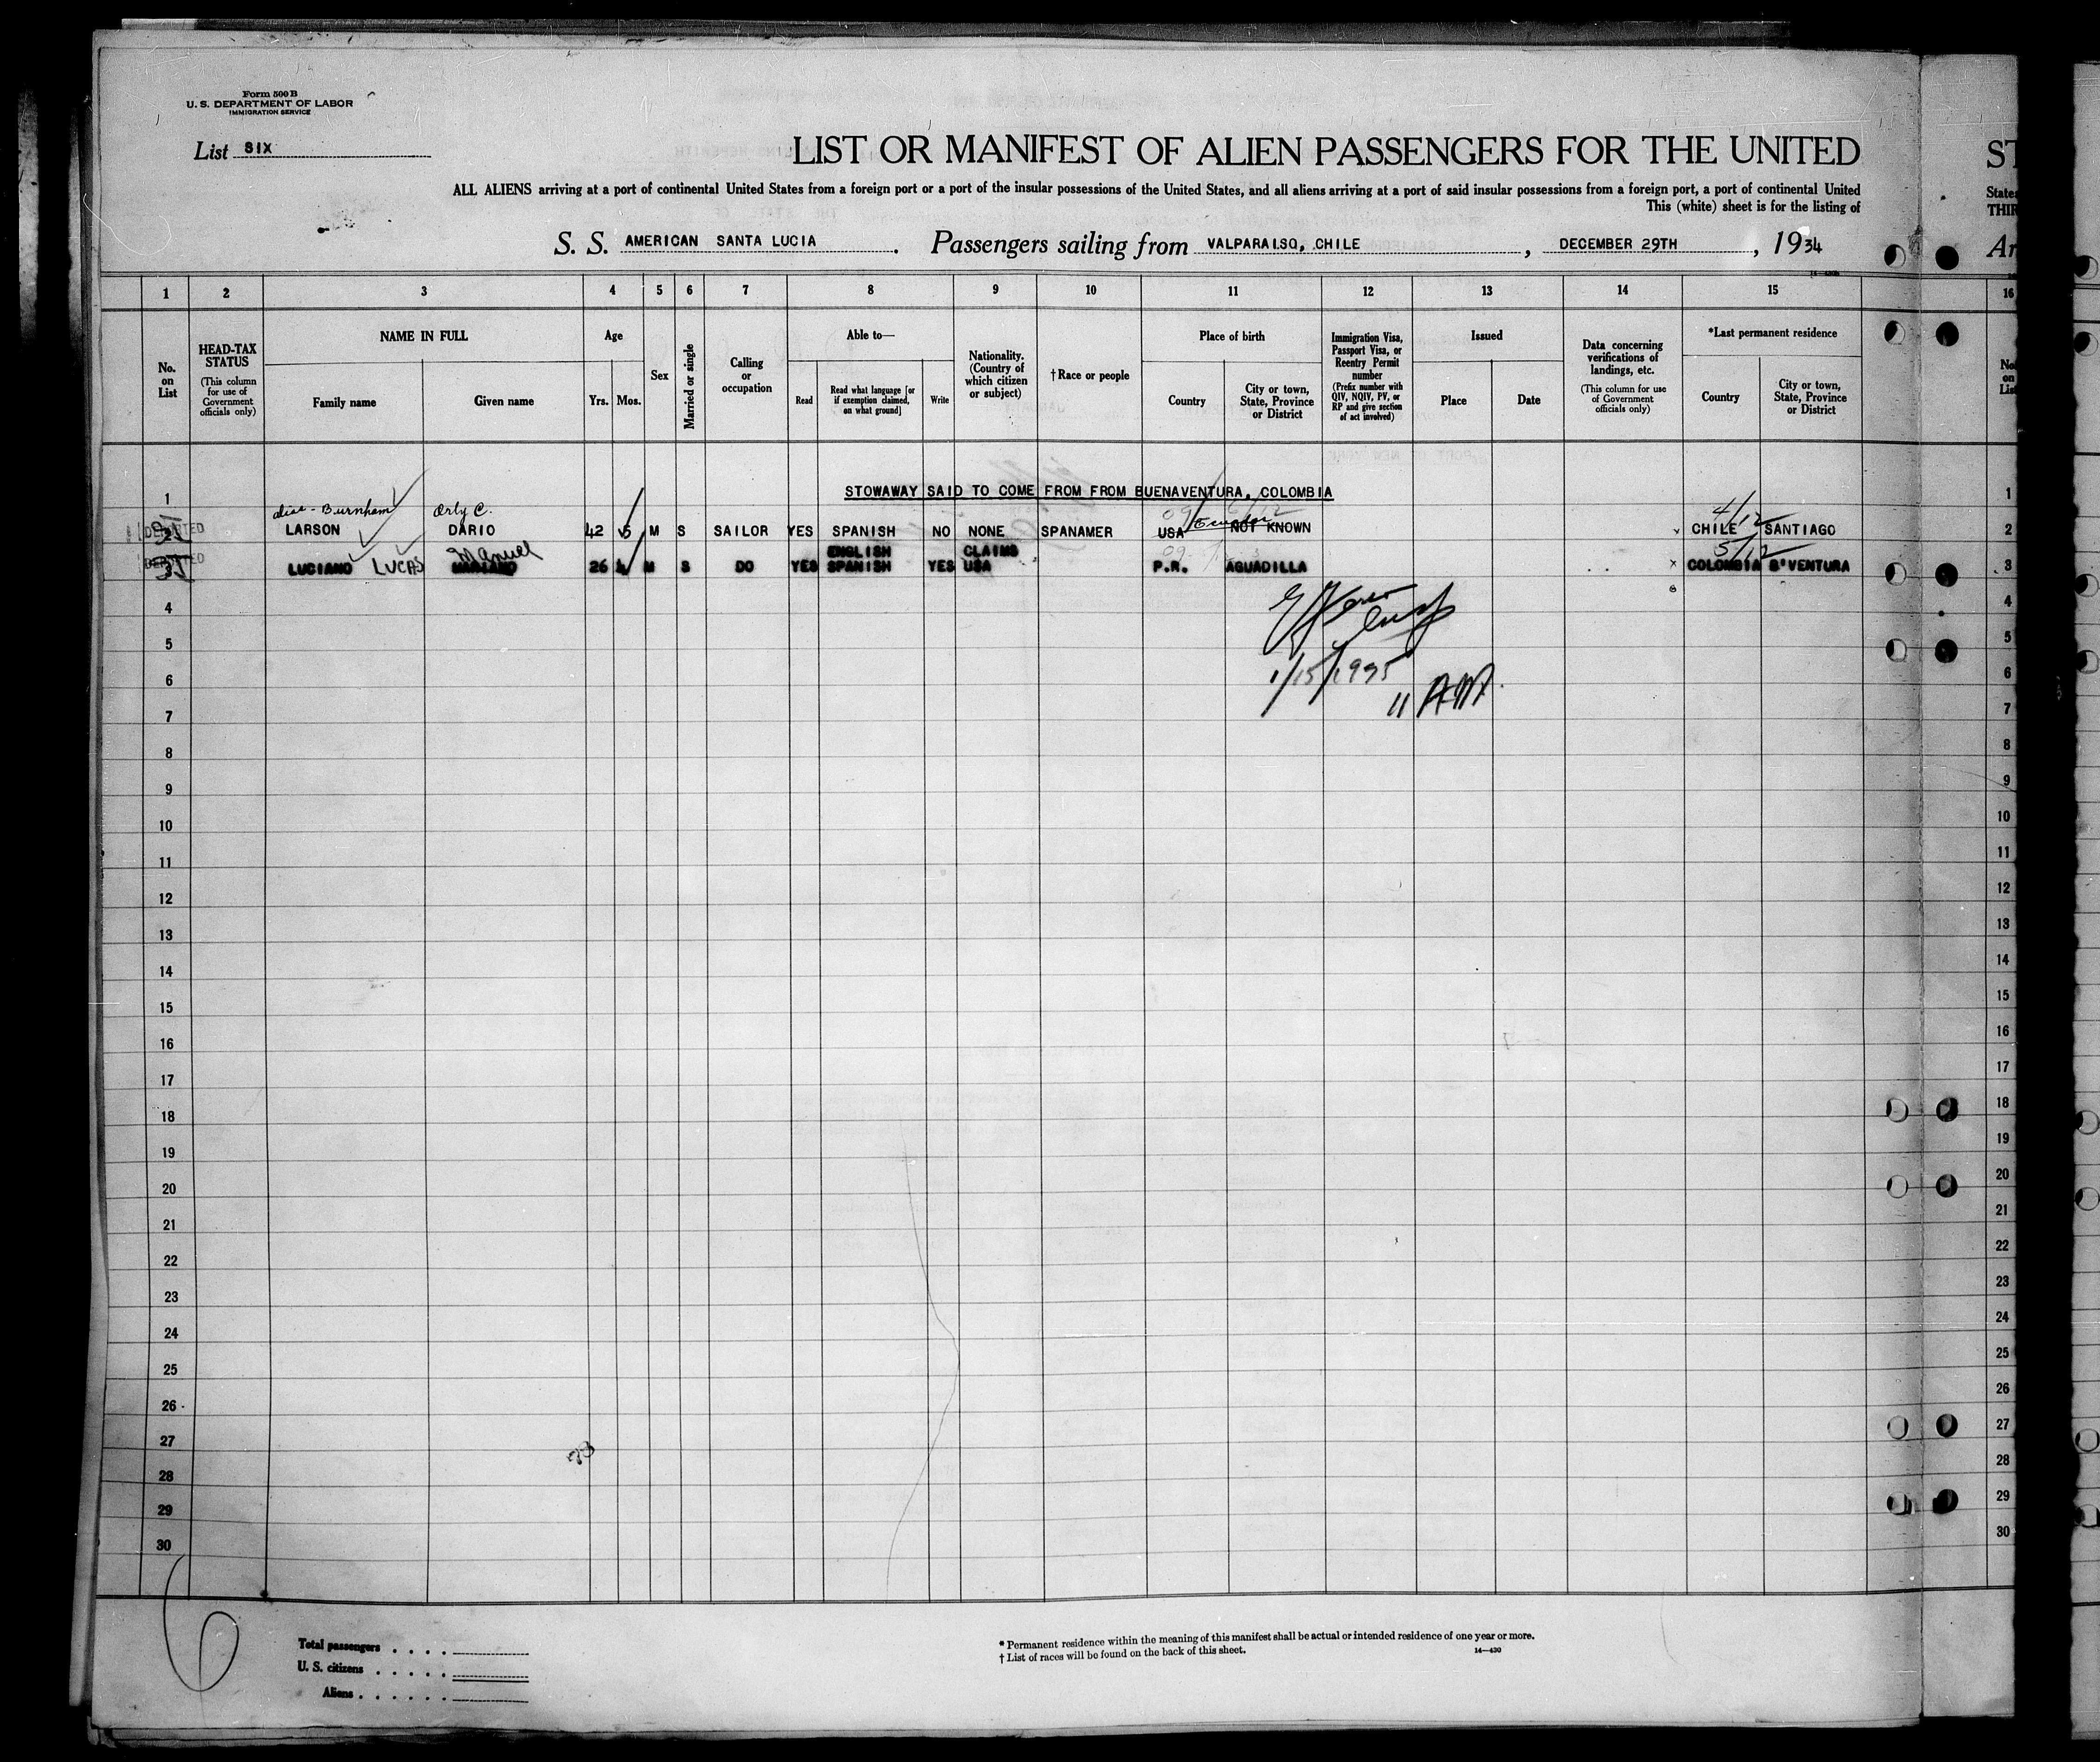 Form 500 B
U. S. DEPARTMENT OF LABOR
IMMIGRATION SERVICE
List SIX
LIST OR MANIFEST OF ALIEN PASSENGERS FOR THE UNITED
ALL ALIENS arriving at a port of continental United States from a foreign port or a port of the insular possessions of the United States, and all aliens arriving at a port of said insular possessions from a foreign port, a port of continental United
This (white) sheet is for the listing of
S. S. AMERICAN SANTA LUCIA. Passengers sailing from VALPARAISO, CHILE, DECEMBER 29TH, 1934
1 2 3 4 5 6 7 8 9 10 11 12 13 14 15 16
No. on List
HEAD-TAX STATUS
(This column for use of Government officials only)
NAME IN FULL
Family name
Given name
Age
Yrs. Mos.
Sex
Married or single
Calling or occupation
Able to—
Read
Read what language [or if exemption claimed, on what ground]
Write
Nationality. (Country of which citizen or subject)
†Race or people
Place of birth
Country
City or town, State, Province or District
Immigration Visa, Passport Visa, or Reentry Permit number
(Prefix number with QIV, NQIV, PV, or RP and give section of act involved)
Issued
Place
Date
Data concerning verifications of landings, etc.
(This column for use of Government officials only)
*Last permanent residence
Country
City or town, State, Province or District
1 STOWAWAY SAID TO COME FROM FROM BUENAVENTURA, COLOMBIA 1
alias - Burnham Orly C. 4/12
2 LARSON DARIO 42 5 M S SAILOR YES SPANISH NO NONE SPANAMER USA Ecuador NOT KNOWN CHILE SANTIAGO 2
Manuel ENGLISH CLAIMS 5/12
3 LUCIANO LUCAS MARIANO 26 4 M S DO YES SPANISH YES USA P.R. AGUADILLA COLOMBIA B'VENTURA 3
4 4
5 5
6 1/15/1935 6
7 11 AM 7
8 8
9 9
10 10
11 11
12 12
13 13
14 14
15 15
16 16
17 17
18 18
19 19
20 20
21 21
22 22
23 23
24 24
25 25
26 26
27 27
28 28
29 29
30 30
6
Total passengers
U. S. citizens
Aliens
* Permanent residence within the meaning of this manifest shall be actual or intended residence of one year or more.
† List of races will be found on the back of this sheet.
14—430
ST
States
THIR
Ar
No. on List